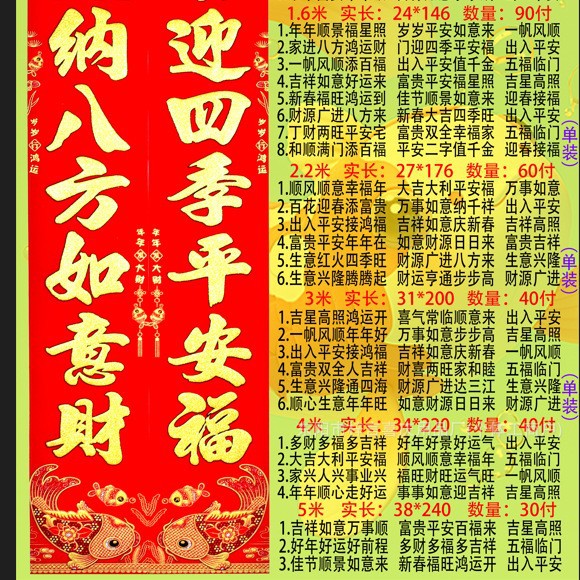 迎四季平安福
纳八方如意财
岁岁行鸿运
岁岁行鸿运
1.6米 实长：24*146 数量：90付
1.年年顺景福星照 岁岁平安如意来 一帆风顺
2.家进八方鸿运财 门迎四季平安福 出入平安
3.一帆风顺添百福 出入平安值千金 五福临门
4.吉祥如意好运来 富贵平安福星照 吉星高照
5.新春福旺鸿运到 佳节顺景如意来 迎春接福
6.财源广进八方来 新春大吉四季旺 出入平安
7.丁财两旺平安宅 富贵双全幸福家 五福临门
8.和顺满门添百福 平安二字值千金 迎春接福
(单装)
2.2米 实长：27*176 数量：60付
1.顺风顺意幸福年 大吉大利平安福 万事如意
2.百花迎春添富贵 万事如意纳千祥 出入平安
3.出入平安接鸿福 吉祥如意庆新春 吉祥高照
4.富贵平安年年在 如意财源日日来 富贵吉祥
5.生意红火四季旺 财源广进八方来 生意兴隆
6.生意兴隆腾腾起 财运亨通步步高 财源广进
(单装)
3米 实长：31*200 数量：40付
1.吉星高照鸿运开 喜气常临顺意来 出入平安
2.一帆风顺年年好 万事如意步步高 吉星高照
3.出入平安接鸿福 吉祥如意庆新春 一帆风顺
4.富贵双全人吉祥 财喜两旺家和睦 五福临门
5.生意兴隆通四海 财源广进达三江 生意兴隆
6.顺心生意年年旺 如意财源日日来 财源广进
(单装)
4米 实长：34*220 数量：40付
1.多财多福多吉祥 好年好景好运气 出入平安
2.大吉大利平安福 顺风顺意幸福年 五福临门
3.家兴人兴事业兴 福旺财旺运气旺 一帆风顺
4.年年顺心走好运 事事如意迎吉祥 吉星高照
5米 实长：38*240 数量：30付
1.吉祥如意万事顺 富贵平安百福来 吉星高照
2.好年好运好前程 多财多福多吉祥 五福临门
3.佳节顺景如意来 新春福旺鸿运开 出入平安